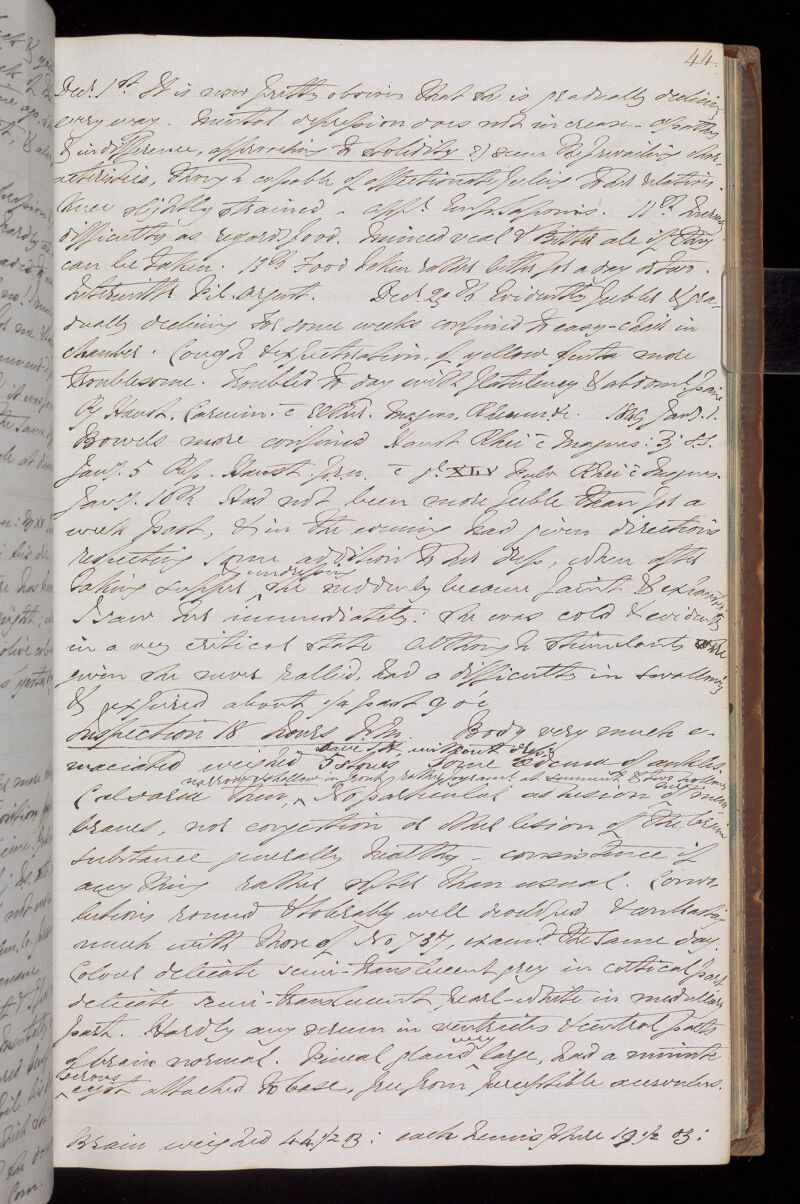 44.
Decr. 1st It is now pretty obvious that she is gradually declining
every way. Mental depression does not increase - apathy
& indifference, approaching to stolidity seem the prevailing char-
acteristics, though capable of affectionate feeling to her relatives.
Knee slightly strained - appr. Emp. Saponis. 11th Increasing
difficulty as regards food. Minced veal & bitter ale if they
can be taken. 13th Food taken rather better for a day or two.
Intermitte Pil. argent. Decr 29th Evidently feebler & gra-
dually declining for some weeks confined to easy-chair in
chamber. Cough & expectoration, of yellow sputa more
troublesome. Troubled to day with flatulency & abdoml. pain
Rx Haust. Carmin. c Magnes. 1849 Jany. 1.
Bowels more confined Haust Rhei c Magnes:
Jany. 5 Rep. Haust. p.r.n. c gr. XLIV Pulv Rhei c Magnes.
Jany. 10th Had not been more feeble than for a
week past, & in the evening had given directions
respecting some addition to her dress, when after
taking supper & undressing she suddenly became faint & exhausted
I saw her immediately: she was cold & evidently
in a very critical state Although stimulants were
given she never rallied, had a difficulty in swallowing
& expired about 1/4 past 9 o'c
Inspection 18 hours P.M. Body very much e-
maciated weighed 5 stones Some oedema of ankles.
narrow & shallow in front, rather
Calvaria thin, No particular adhesion of mem-
branes, nor congestion or other lesion of the brain
substance generally healthy - consistence if
any thing rather softer than usual. Convo-
lutions round & tolerably well developed & contrasting
much with those of No 737, examd. the same day.
Colour delicate semi-translucent grey in cortical part
delicate semi-translucent pearl-white in medullary
part. Hardly any serum in ventricles & central parts
of brain normal. Pineal gland very large, had a minute
serous cyst attached to base, free from perceptible acervulus.
Brain weighed 44 1/2 oz: each hemisphere 19 1/2 oz: